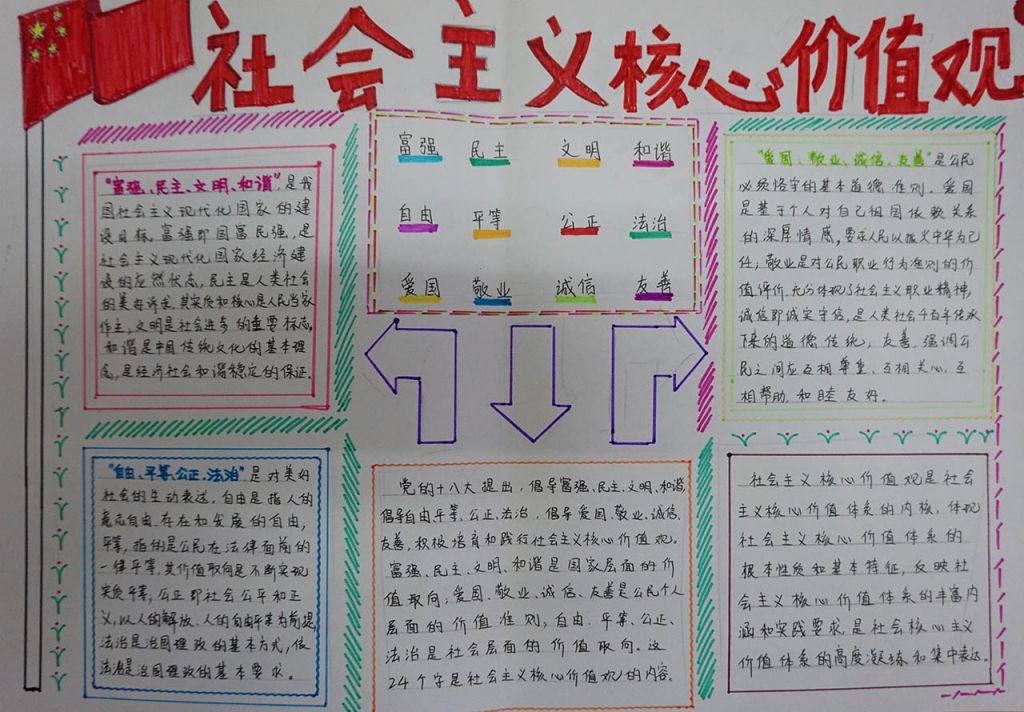 社会主义核心价值观
富强 民主 文明 和谐
自由 平等 公正 法治
爱国 敬业 诚信 友善
“富强、民主、文明、和谐”,是我
国社会主义现代化国家的建
设目标。富强即国富民强,是
社会主义现代化国家经济建
设的应然状态,民主是人类社会
的美好诉求,其实质和核心是人民当家
作主,文明是社会进步的重要标志,
和谐是中国传统文化的基本理
念,是经济社会和谐稳定的保证.
“爱国、敬业、诚信、友善”是公民
必须恪守的基本道德准则。爱国
是基于个人对自己祖国依赖关系
的深厚情感,要求人民以振兴中华为己
任;敬业是对公民职业行为准则的价
值评价,充分体现了社会主义职业精神,
诚信即诚实守信,是人类社会千百年传承
下来的道德传统,友善,强调公
民之间应互相尊重、互相关心、互
相帮助,和睦友好.
“自由、平等、公正、法治”是对美好
社会的生动表述.自由是指人的
意志自由,存在和发展的自由,
平等,指的是公民在法律面前的
一律平等,其价值取向是不断实现
实质平等,公正即社会公平和正
义,以人的解放、人的自由平等为前提,
法治是治国理政的基本方式,依
法治是治国理政的基本要求.
党的十八大提出,倡导富强、民主、文明、和谐,
倡导自由、平等、公正、法治,倡导爱国、敬业、诚信、
友善,积极培育和践行社会主义核心价值观.
富强、民主、文明、和谐是国家层面的价
值取向;爱国、敬业、诚信、友善是公民个人
层面的价值准则;自由、平等、公正、
法治是社会层面的价值取向.这
24个字是社会主义核心价值观的内容.
社会主义核心价值观是社会
主义核心价值体系的内核,体现
社会主义核心价值体系的
根本性质和基本特征,反映社
会主义核心价值体系的丰富内
涵和实践要求,是社会核心主义
价值体系的高度凝练和集中表达.